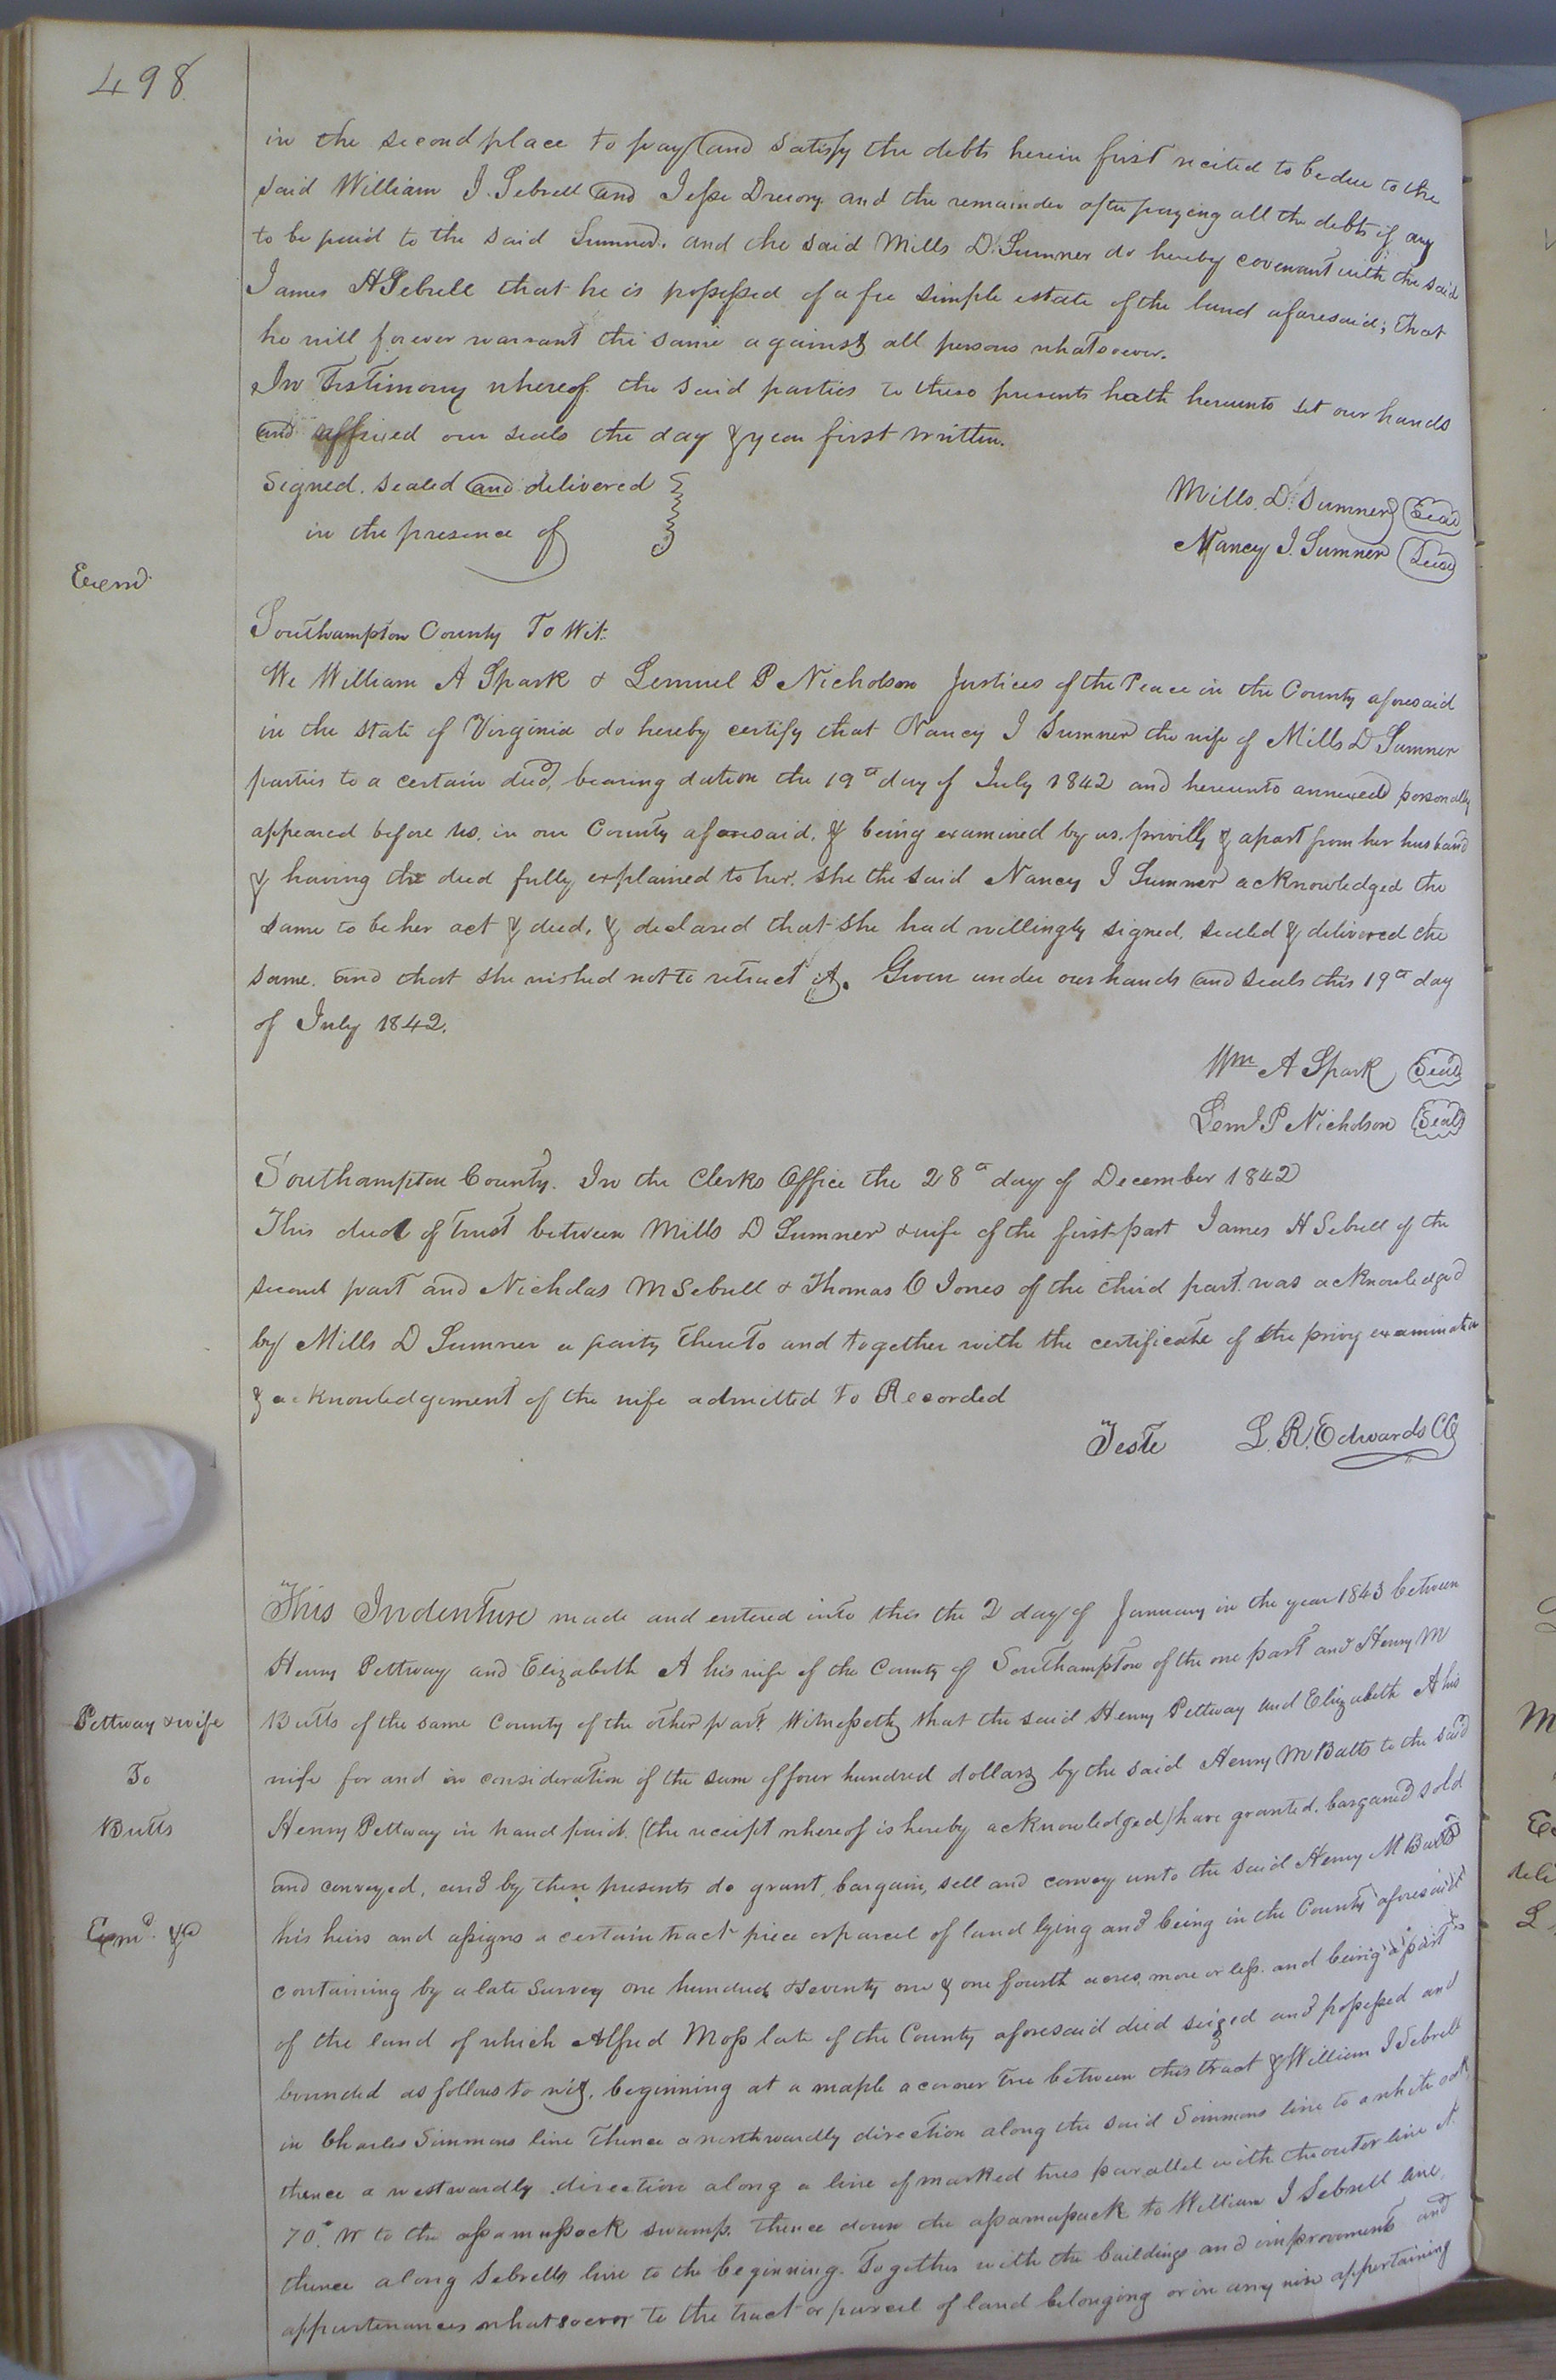 498
in the second place to pay and satisfy the debts herein first recited to be due to the
said William J. Sebrell and Jesse Drewry and the remainder after paying all the debts if any
to be paid to the said Sumner. and the said Mills D. Sumner do hereby covenant with the said
James H Sebrell that he is possessed of a fee simple estate of the land aforesaid; that
he will forever warrant the same against all persons whatsoever.
In Testimony whereof the said parties to these presents hath hereunto set our hands
and affixed our seals the day & year first written.
Signed. sealed and delivered
in the presence of
Mills. D. Sumner Seal
Nancy J. Sumner Seal
Exemd.
Southampton County To Wit.
We William A Spark & Lemuel P Nicholson Justices of the Peace in the County aforesaid
in the state of Virginia do hereby certify that Nancy J Sumner the wife of Mills D Sumner
parties to a certain deed, bearing date on the 19th day of July 1842 and hereunto annexed personally
appeared before us. in our County aforesaid. & being examined by us. privilly & apart from her husband
& having the deed fully explained to her. she the said Nancy J Sumner acknowledged the
same to be her act & deed, & declared that she had willingly signed, sealed & delivered the
same. and that she wished not to retract it. Given under our hands and seals this 19th day
of July 1842.
Wm A Spark Seal
Leml P Nicholson Seal
Southampton County. In the Clerks Office the 28th day of December 1842
This deed of trust between Mills D Sumner & wife of the first part James H Sebrell of the
second part and Nicholas M Sebrell & Thomas C Jones of the third part. was acknowledged
by Mills D Sumner a party thereto and together with the certificate of the privy examination
& acknowledgement of the wife admitted to Recorded
Teste L. R. Edwards CC
This Indenture made and entered into this the 2 day of January in the year 1843 between
Henry Pettway and Elizabeth A his wife of the County of Southampton of the one part and Henry M
Pettway & wife
Butts of the same County of the other part. Witnesseth, that the said Henry Pettway and Elizabeth A his
To
wife for and in consideration of the sum of four hundred dollars by the said Henry M Butts to the said
Butts
Henry Pettway in hand paid. (the receipt whereof is hereby acknowledged) have granted. barganed sold
and conveyed, and by these presents do grant, bargain, sell and convey unto the said Henry M Butts
Exmd
his heirs and assigns a certain tract piece or parcel of land lying and being in the County aforesaid
containing by a late Survey one hundred & seventy one & one fourth acres, more or less. and being a part
of the land of which Alfred Moss late of the County aforesaid died seized and possessed and
bounded as follows to wit, beginning at a maple a corner tree between this tract & William J Sebrell
in Charles Simmons line thence a northwardly direction along the said Simmons line to a white oak
thence a westwardly direction along a line of marked trees parallel with the outer line N.
70° W to the assamussock swamp. thence down the assamussock to William J Sebrell line,
thence along Sebrells line to the beginning. Together with the buildings and improvements and
appurtenances whatsoever to the tract or parcel of land belonging or in any wise appertaining